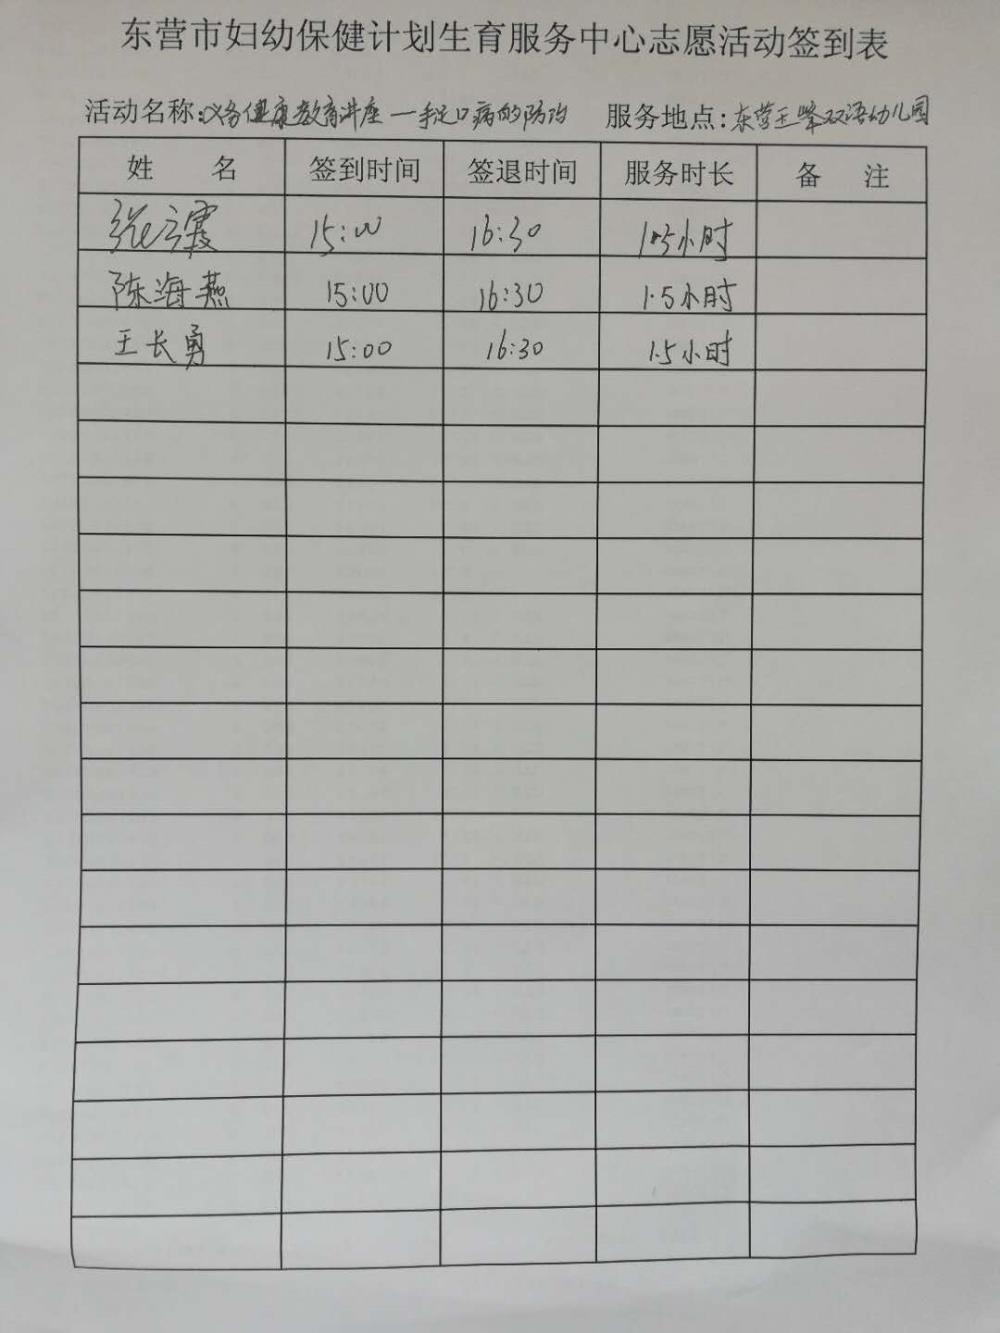 东营市妇幼保健计划生育服务中心志愿活动签到表
活动名称:义务健康教育讲座—手足口病的防治 服务地点:东营王峰双语幼儿园
姓 名 签到时间 签退时间 服务时长 备 注
张云霞 15:00 16:30 1.5小时
陈海燕 15:00 16:30 1.5小时
王长勇 15:00 16:30 1.5小时